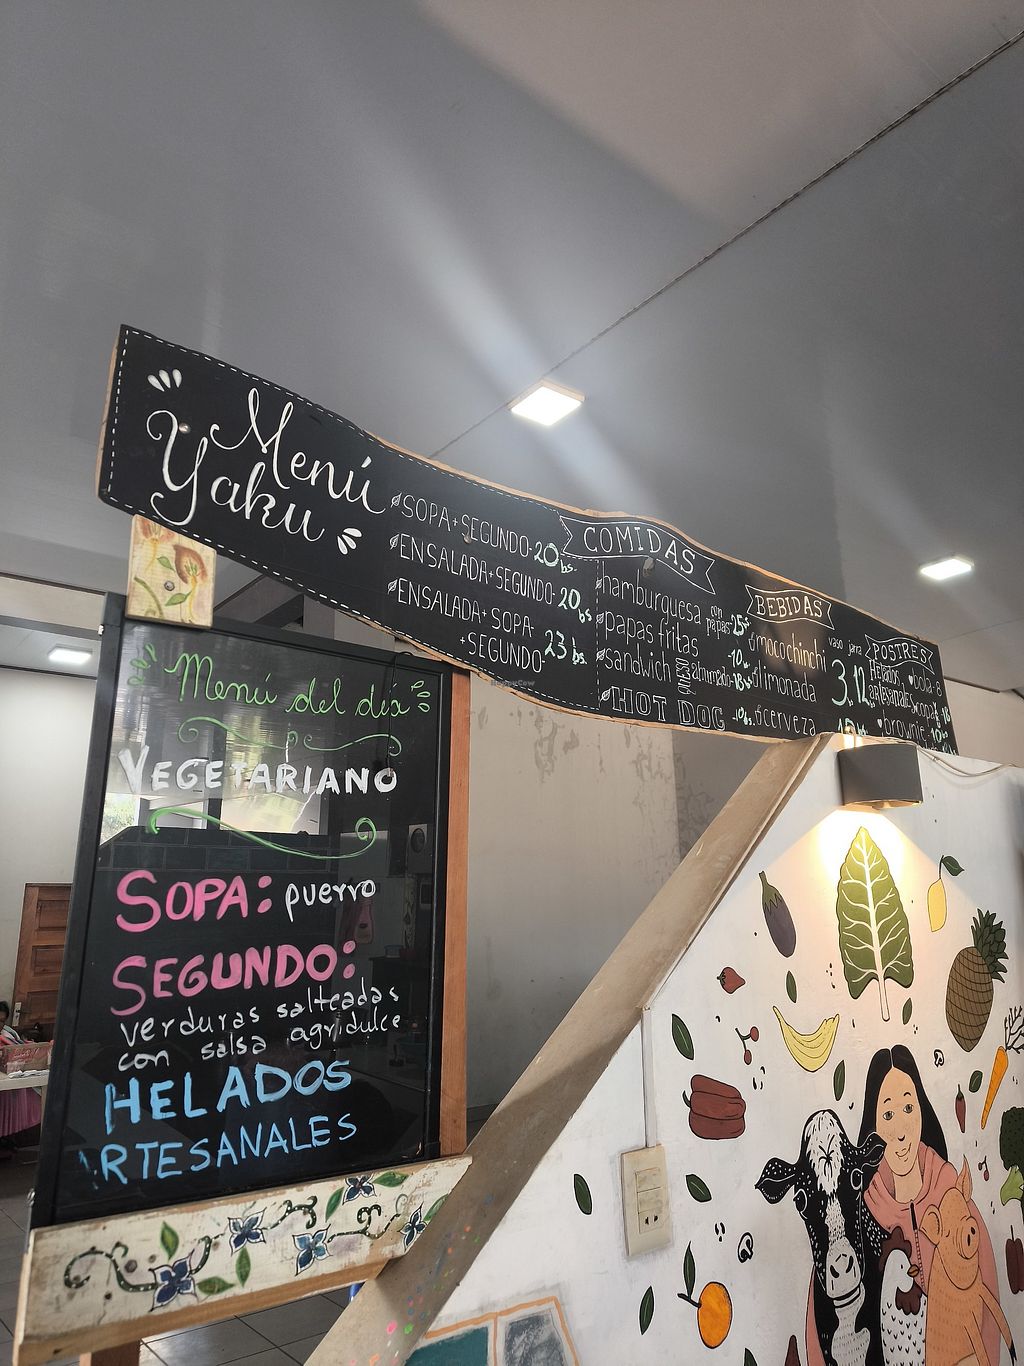 Menú
Yaku
SOPA+SEGUNDO-20 bs.
ENSALADA+SEGUNDO-20 bs
ENSALADA+SOPA
+SEGUNDO-23 bs.
COMIDAS
hamburguesa con papas 25
papas fritas 10
sandwich QUESO ahumado 18
HOT DOG 10 bs
BEBIDAS
vaso jarra
mocochinchi
limonada
3 12
cerveza
POSTRES
Helados artesanales
bola-8
copa
18
brownie
Menú del día
VEGETARIANO
SOPA: puerro
SEGUNDO:
verduras salteadas
con salsa agridulce
HELADOS
ARTESANALES